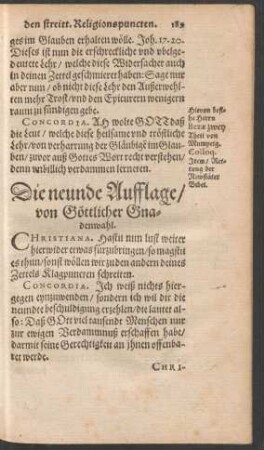 den streitt. Religionspuncten. 189
ges im Glauben erhalten wölle. Joh. 17. 20.
Dieses ist nun die erschreckliche vnd vbelge-
deutete Lehr / welche diese Widersacher auch
in deinen Zettel geschmieret haben: Sage nur
aber nun / ob nicht diese Lehr den Außerwöhl-
ten mehr Trost / vnd den Epicurern wenigern
raum zu sündigen gebe.
CONCORDIA. Ah wolte GOTT daß
die Leut / welche diese heilsame vnd tröstliche
Lehr / von verharrung der Gläubigē im Glau-
ben / zuvor auß Gottes Wort recht verstehen /
denn vnbillich verdammen lerneten.
Hievon besi-
he Herrn
Beza zwey
Theil von
Mumpelg.
Colloq.
Item / Ret-
tung der
Newstäter
Bibel.
Die neunde Aufflage /
von Göttlicher Gna-
denwahl.
CHRISTIANA. Hastu nun lust weiter
hierwider etwas fürzubringen / so magstu
es thun / sonst wöllen wir zu den andern deines
Zettels Klagpuncten schreiten.
CONCORDIA. Ich weiß nichts hier-
gegen eynzuwenden / sondern ich wil dir die
neundte beschuldigung erzhlen / die lautet al-
so: Daß GOtt viel tausendt Menschen nur
zur ewigen Verdammnuß erschaffen habe /
darmit seine Gerechtigkeit an jhnen offenba-
ret werde.
CHRI-